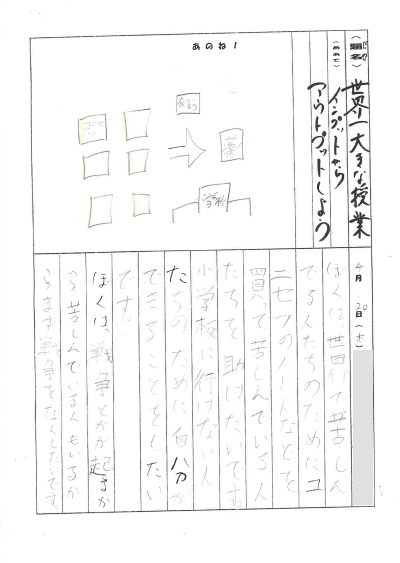 あのね!
(題名)
(めあて)
世界一大きな授業
インプットから
アウトプットしよう
学校
4月20日(木)
ぼくは世界で苦しん
でる人たちのためにユ
ニセフのノートなどを
買って苦しんでいる人
たちを助けたいです。
小学校に行けない人
たちのために自分が
できることをしたい
です。
ぼくは、戦争とかが起るか
ら苦しんでいる人もいるか
らまず戦争をなくしたいです。